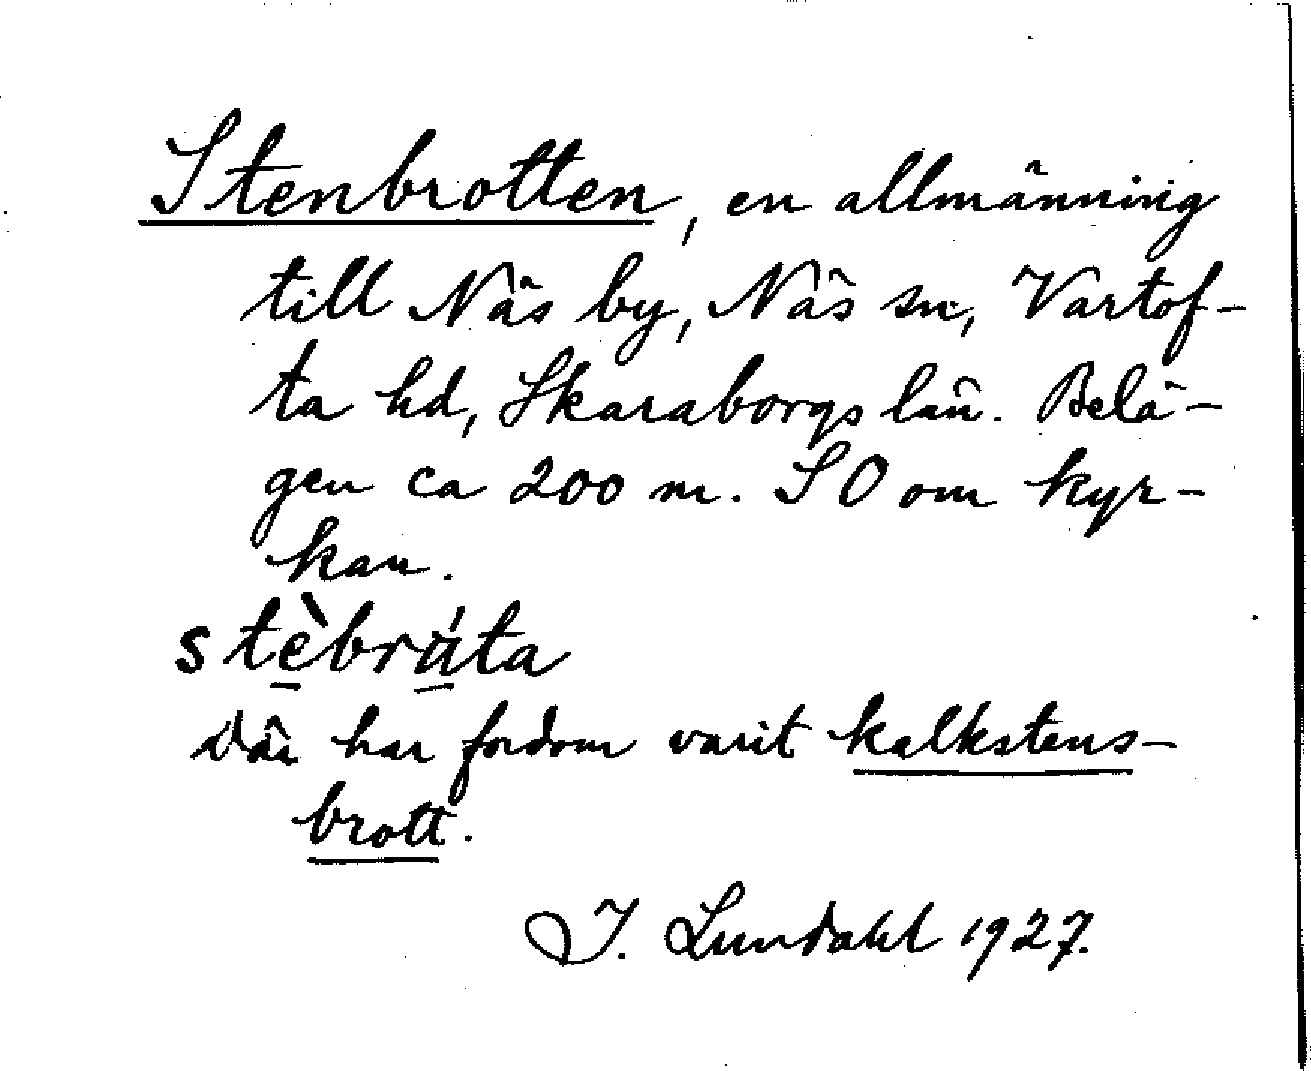 Stenbrotten, en allmänning
till Näs by, Näs sn, Vartof-
ta hd, Skaraborgs län. Belä-
gen ca 200 m. SO om kyr-
kan.
stèbrä́ta
Där har fordom varit kalkstens-
brott.
I. Lundahl 1927.